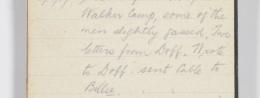 Walker Camp, some of the
men slightly gassed, Two
letters from Doff. Wrote
to Doff. sent Cable to
Billie.